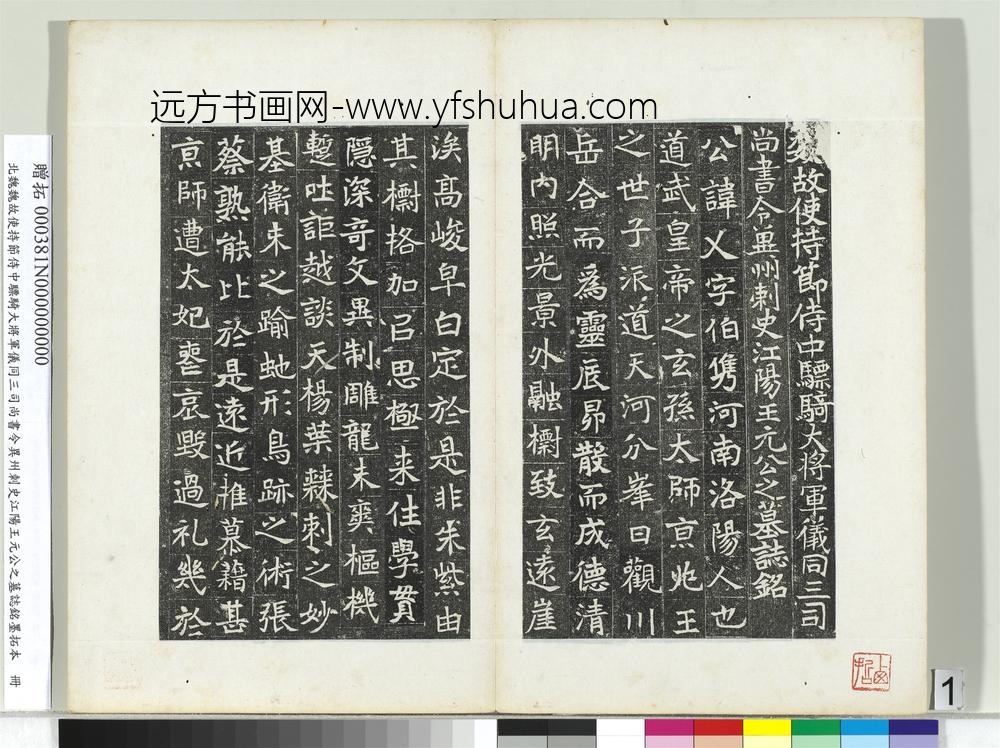 远方书画网-www.yfshuhua.com
魏故使持節侍中驃騎大將軍儀同三司
尚書令冀州刺史江陽王元公之墓誌銘
公諱乂字伯儁河南洛陽人也
道武皇帝之玄孫太師京兆王
之世子派道天河分峯日觀川
岳合而爲靈辰昴散而成德清
明內照光景外融櫛致玄遠崖
涘高峻皁白定於是非朱紫由
其櫛格加㠯思極來往學貫
隱深奇文異制雕龍未爽樞機
蹔吐詎越談天楊葉棘刺之妙
基衛朱之踰虵形鳥跡之術張
蔡孰能比於是遠近推慕藉甚
京師遭太妃喪哀毀過礼幾於
贈拓 000381N000000000
北魏魏故使持節侍中驃騎大將軍儀同三司尚書令冀州刺史江陽王元公之墓誌銘墨拓本 冊
1